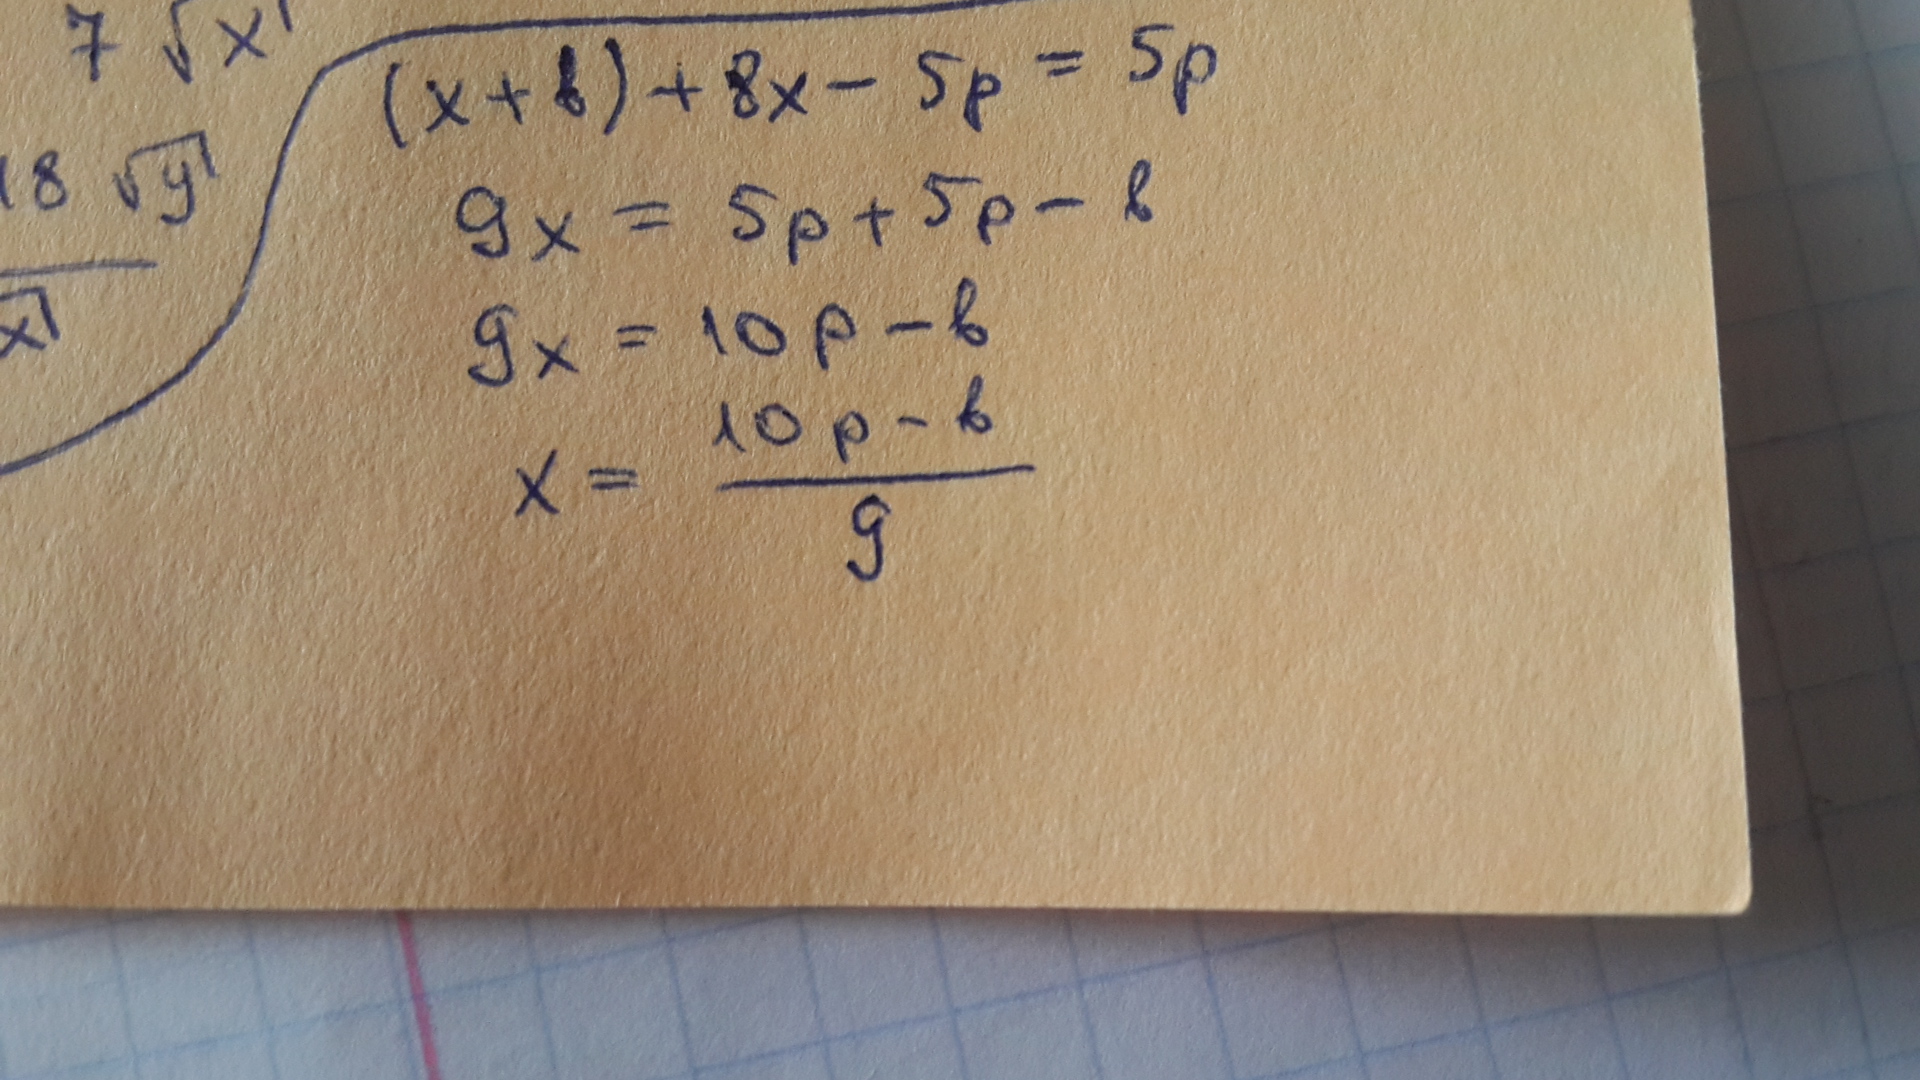 7 √x
18 √y
x
(x + b) + 8x - 5p = 5p
9x = 5p + 5p - b
9x = 10p - b
x = (10p - b) / 9